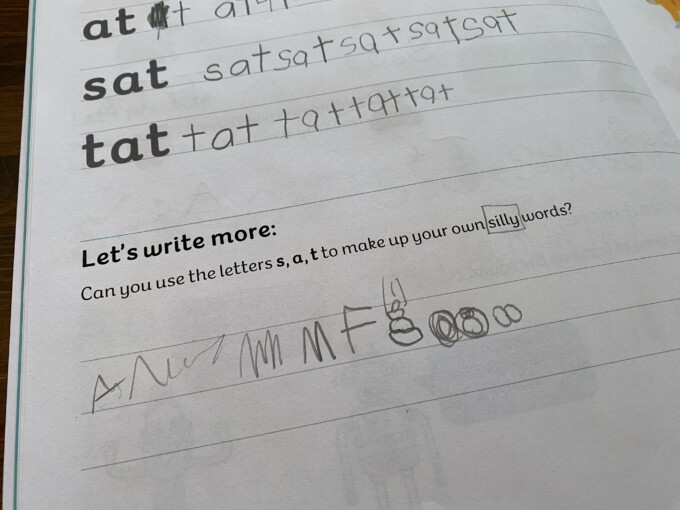 at t at
sat satsatsatsatsat
tat tat tattattat
Let's write more:
Can you use the letters s, a, t to make up your own silly words?
A N M M F 8